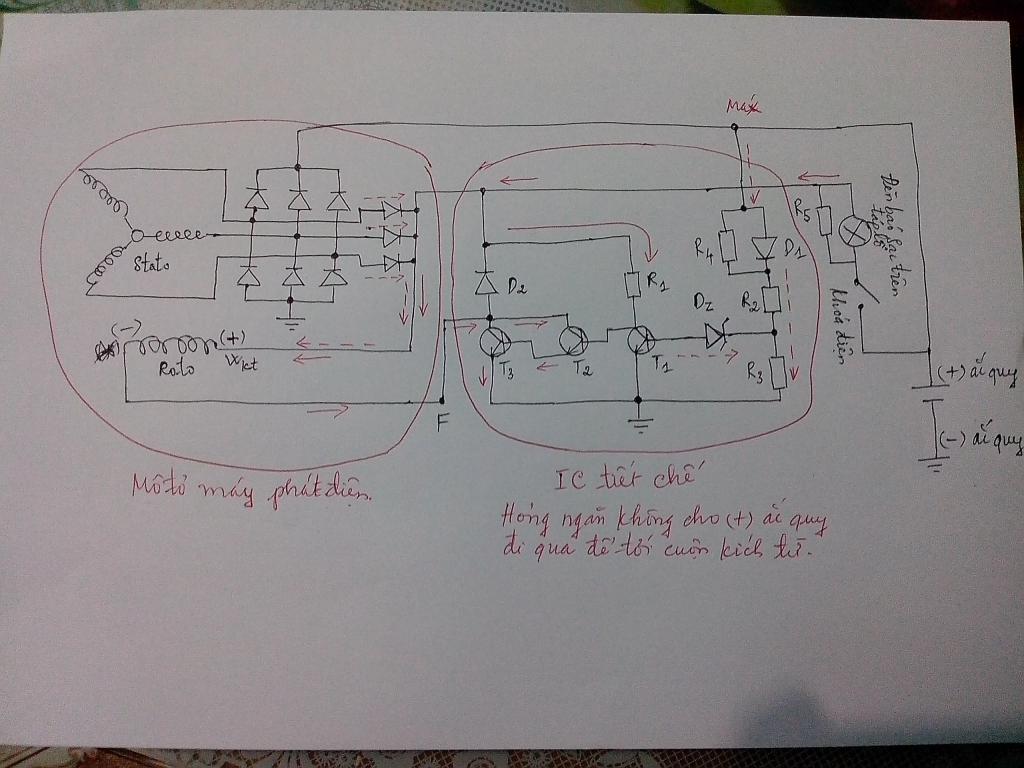 Máx
Stato
(-)
(+)
Rôto
Wkt
F
D2
R1
T3
T2
T1
Dz
R4
D1
R2
R3
R5
Đèn báo sạc trên
táp lô
khoá điện
(+) ắc quy
(-) ắc quy
Môtơ máy phát điện.
IC tiết chế
Hỏng ngăn không cho (+) ắc quy
đi qua để tới cuộn kích từ.